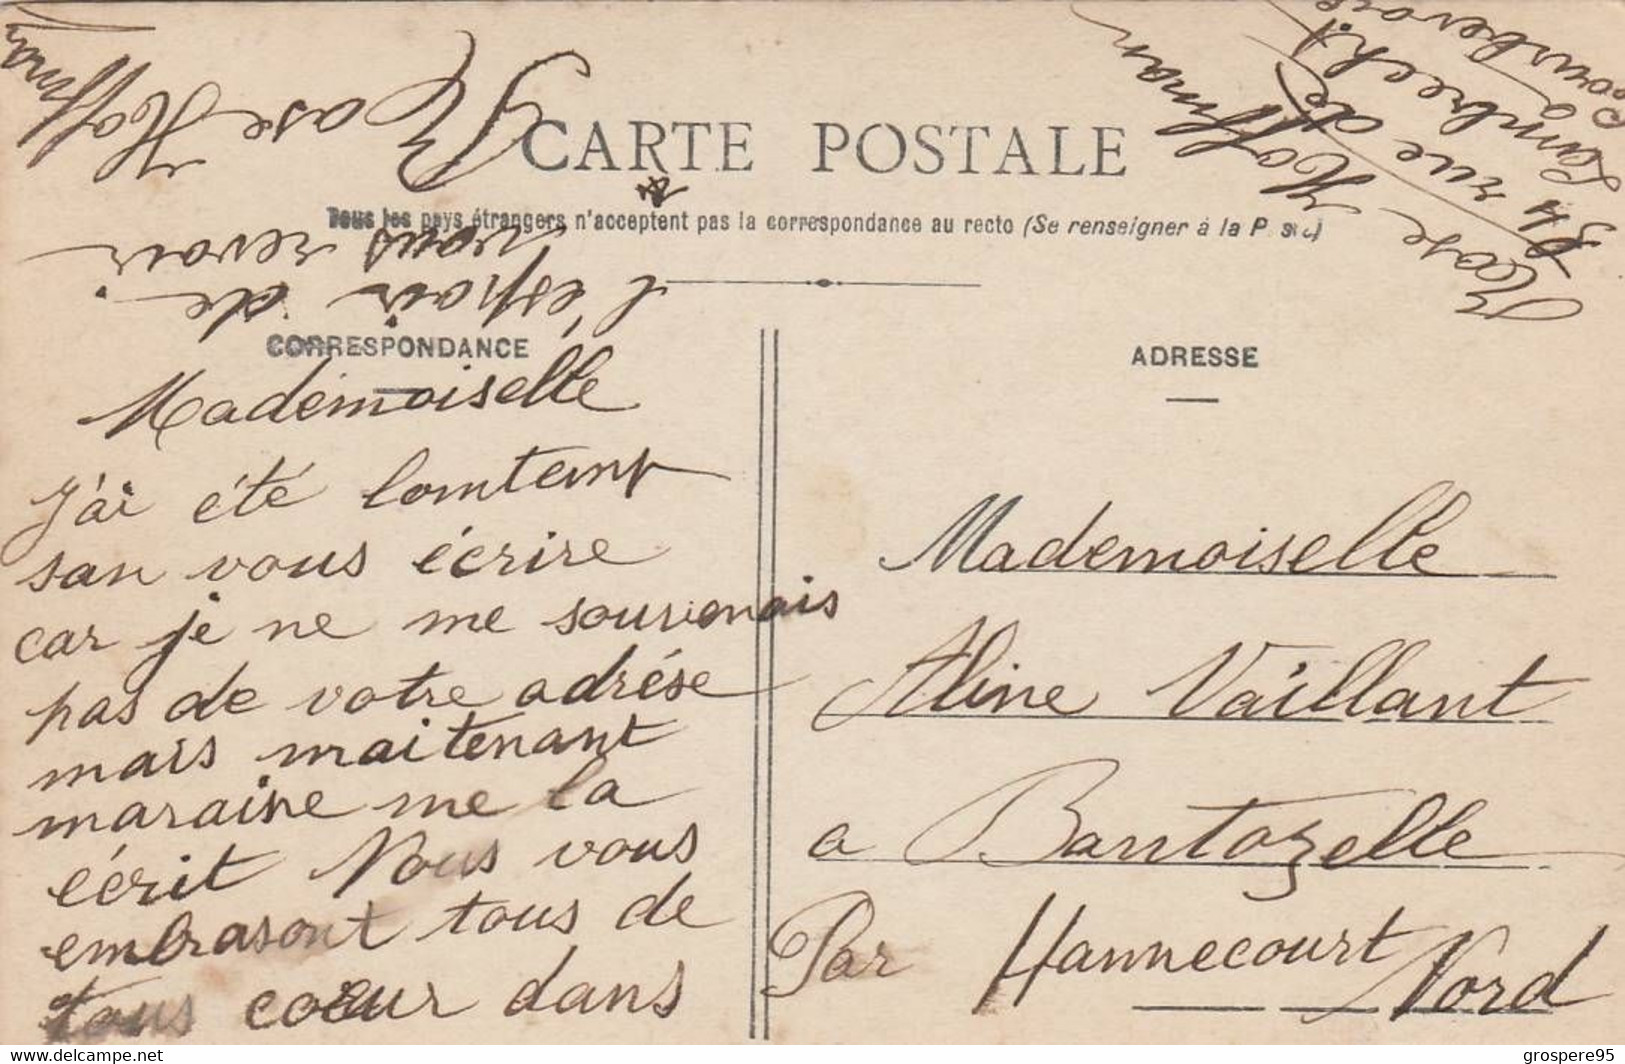 CARTE POSTALE
Tous les pays étrangers n'acceptent pas la correspondance au recto (Se renseigner à la P ste)
CORRESPONDANCE
Mademoiselle
J'ai été lomtemp
san vous écrire
car je ne me souvenais
pas de votre adrése
mais maitenant
maraine me la
écrit Nous vous
embrasont tous de
tous coeur dans
l'espoir de
vous revoir
Rose Hoffman
ADRESSE
Mademoiselle
Aline Vaillant
a Bantozelle
Par Hannecourt Nord
Rose Hoffman
54 rue de
Lambrecht
Courbevoie
www.delcampe.net
grospere95